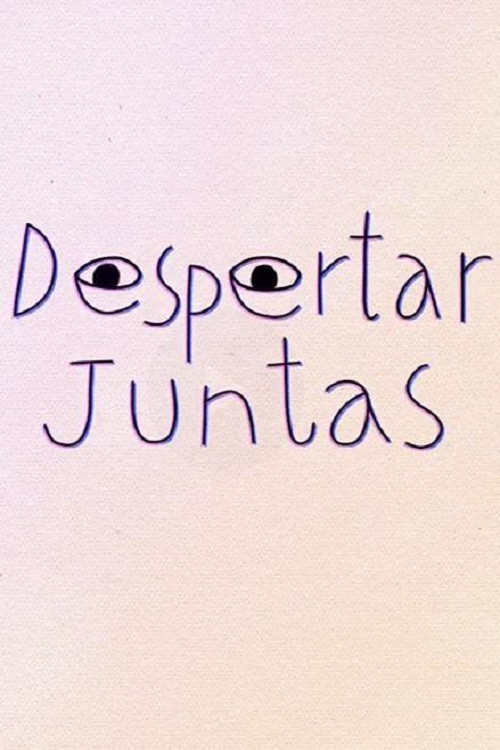 Despertar
Juntas